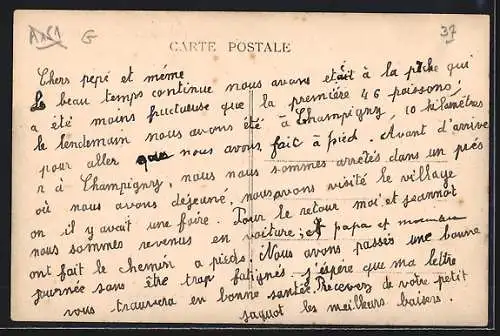 A1C1 G 37
CARTE POSTALE
Chers pépé et mémé
Le beau temps continue nous avons été à la pêche qui
a été moins fructueuse que la première 46 poissons,
le lendemain nous avons été à Champigny, 10 kilomètres
pour aller que nous avons fait à pied. Avant d'arrive
r à Champigny, nous nous sommes arrêtés dans un prés
où nous avons dejeuné, nous avons visité le village
on il y avait une foire. Pour le retour moi et jeannot
nous sommes revenus en voiture; et papa et maman
ont fait le chemin a pieds. Nous avons passés une bonne
journée sans être trop fatignés. j'éspère que ma lettre
vous trauvera en bonne santée. Recevez de votre petit
jaquot les meilleurs baisers.